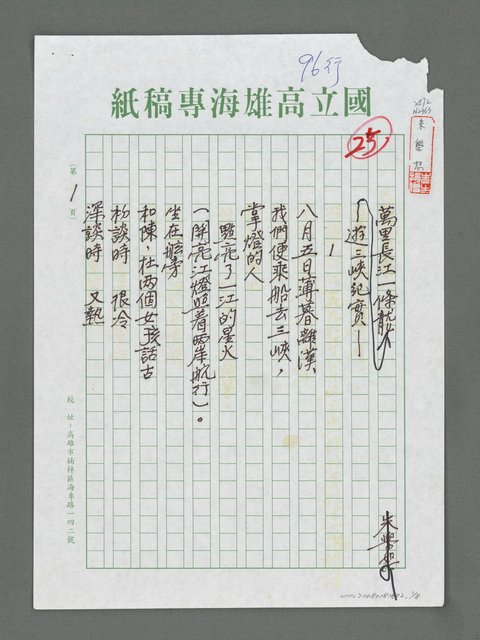 96行
國立高雄海專稿紙
25
萬里長江一條龍
—遊三峽紀實—
朱學恕
1
八月五日薄暮離漢,
我們便乘船去三峽,
掌燈的人
點亮了一江的星火
(開亮江燈照着兩岸航行)。
坐在艙旁
和陳、杜两個女孩話古
初談時 很冷
深談時 又熱
(第1頁)
校 址:高雄市楠梓區海專路一四二號